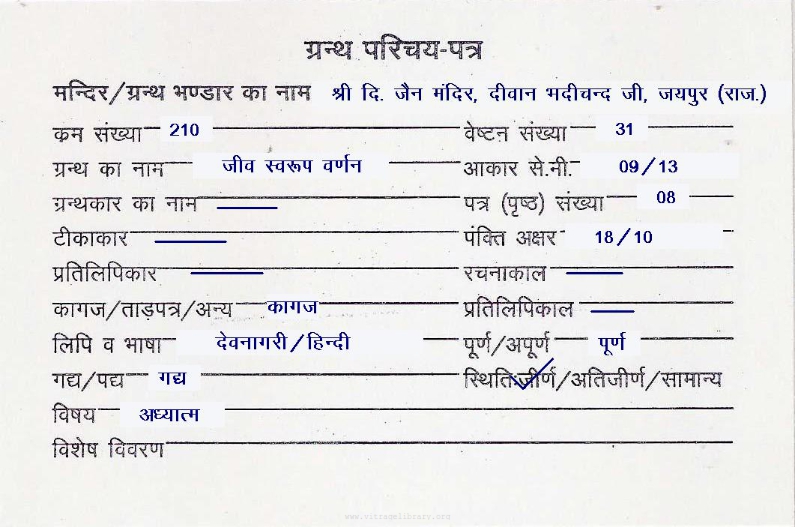 ग्रन्थ परिचय-पत्र
मन्दिर/ग्रन्थ भण्डार का नाम श्री दि. जैन मंदिर, दीवान भदीचन्द जी, जयपुर (राज.)
कम संख्या 210 वेष्टन संख्या 31
ग्रन्थ का नाम जीव स्वरूप वर्णन आकार से.मी. 09/13
ग्रन्थकार का नाम पत्र (पृष्ठ) संख्या 08
टीकाकार पंक्ति अक्षर 18/10
प्रतिलिपिकार रचनाकाल
कागज/ताड़पत्र/अन्य कागज प्रतिलिपिकाल
लिपि व भाषा देवनागरी/हिन्दी पूर्ण/अपूर्ण पूर्ण
गद्य/पद्य गद्य स्थिति:जीर्ण/अतिजीर्ण/सामान्य
विषय अध्यात्म
विशेष विवरण
www.vitragelibrary.com